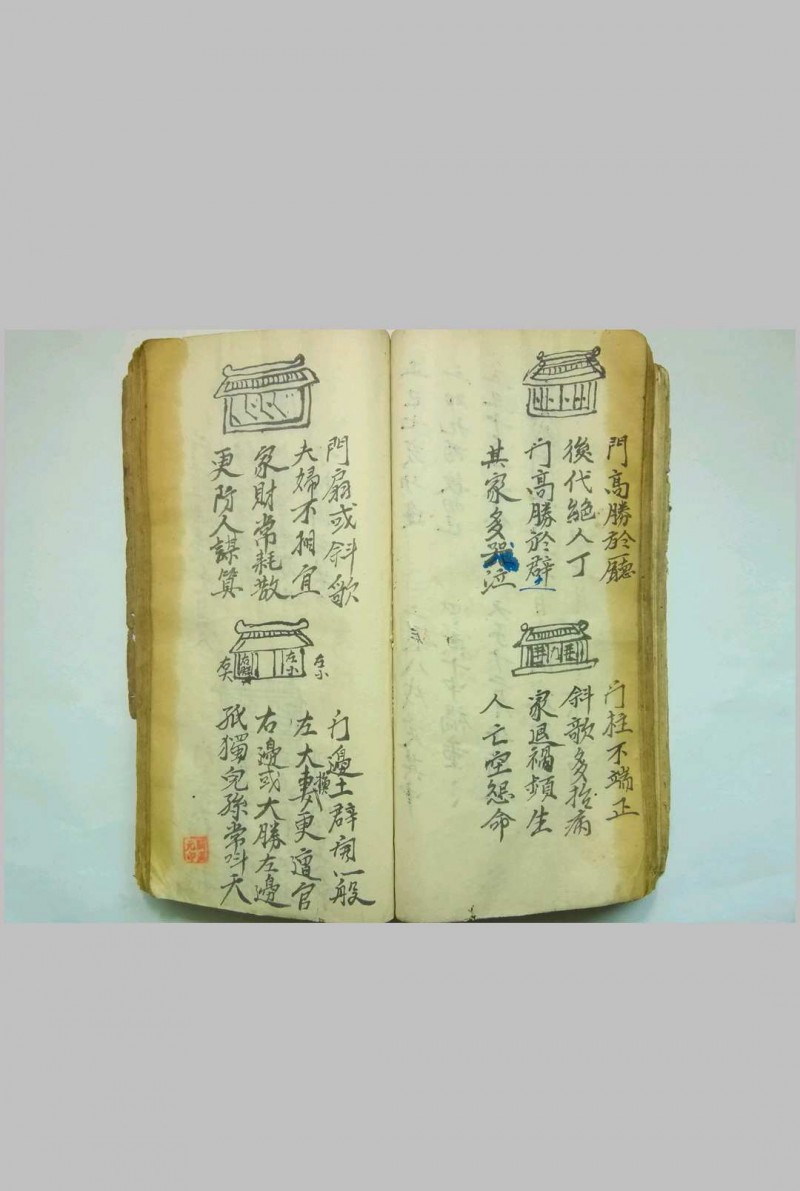 門高勝於廳
後代絕人丁
门高勝於群
其家多哭泣
门柱不端正
斜歌多招病
家退禍頻生
人亡空怨命
門扇或斜歌
夫婦不相宜
家財常耗散
更防人謀算
左小
左小
右大
门邊土群同一般
左大換妻更遭官
右邊或大勝左邊
孤獨兒孫常叫天